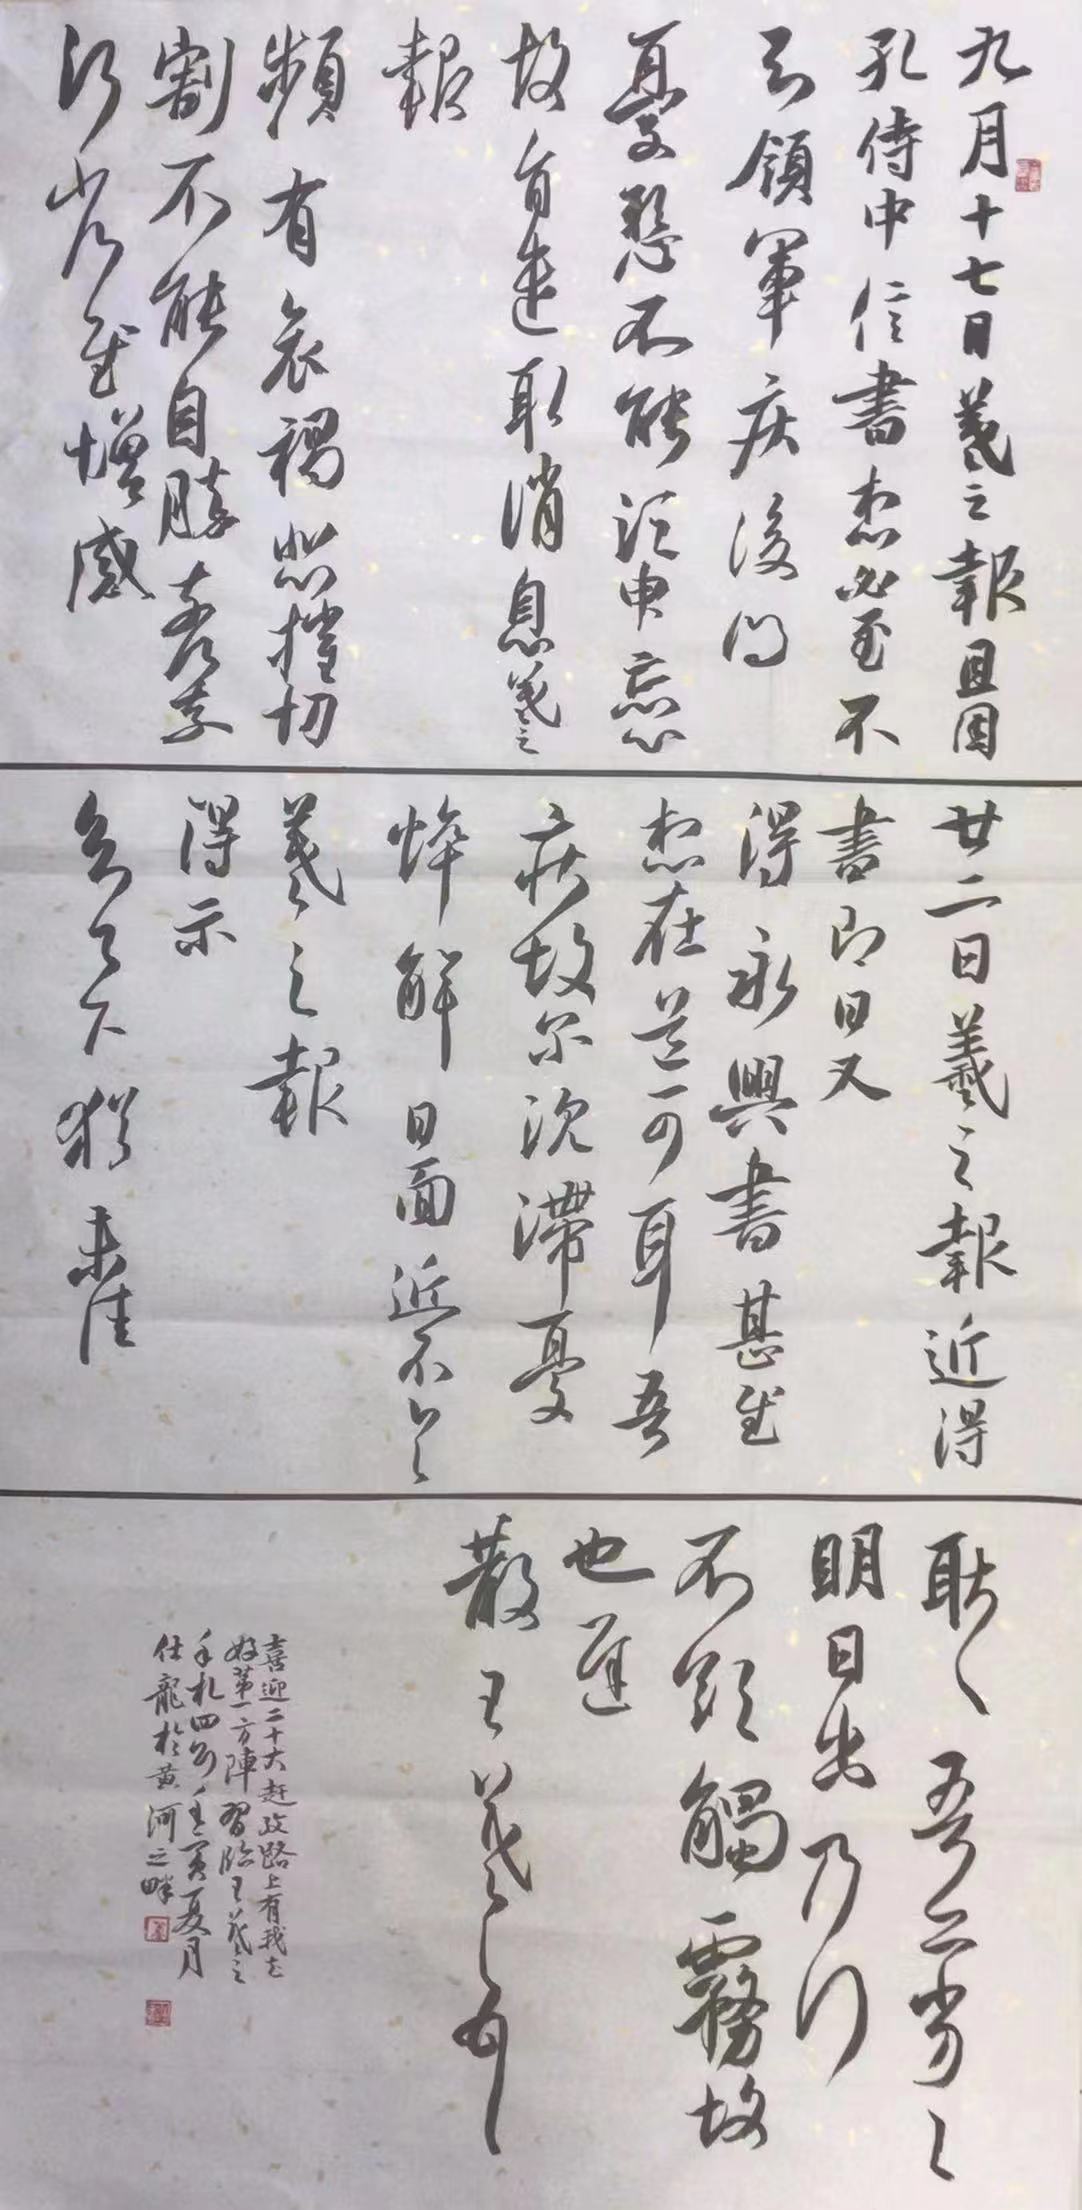 九月十七日羲之報且因
孔侍中信書想必至不
知領軍疾後問
憂懸不能須臾忘心
故旨遣取消息羲之
報
頻有哀禍悲摧切
割不能自勝奈何奈
何省慰增感
廿二日羲之報近得
書即日又
得永興書甚慰
想在道可耳吾
疾故爾沉滯憂
悴解日面近不具
羲之報
得示
知足下猶未佳
耿耿吾亦劣劣
明日出乃行
不欲觸霧故
也遲
散王羲之頓首
喜迎二十大赶攷路上有我走
好第一方陣習臨王羲之
手札四分壬寅夏月
仕龍於黄河之畔